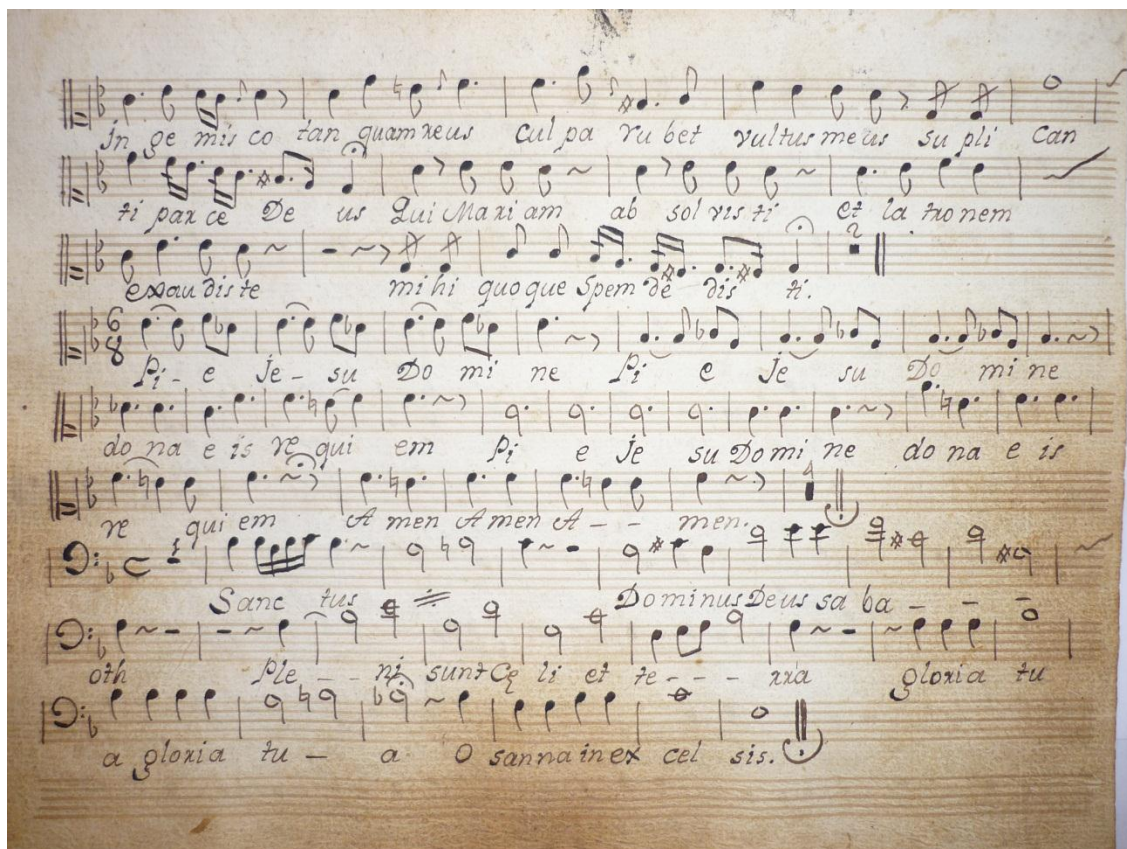 In ge mis co tan quam reus cul pa ru bet vultus me us su pli can
ti par ce De us Qui Mari am ab sol vis ti et la tro nem
exau dis te mi hi quo que Spem de dis ti.
Pi - e Je - su Do mi ne Pi e Je su Do mi ne
do na e is re qui em Pi e Je su Do mi ne do na e is
re qui em A men A men A - - men.
Sanc tus Dominus Deus sa ba - - -
oth Ple - - ni sunt Cę li et te - - - rra gloria tu
a gloria tu - a O sanna in ex cel sis.